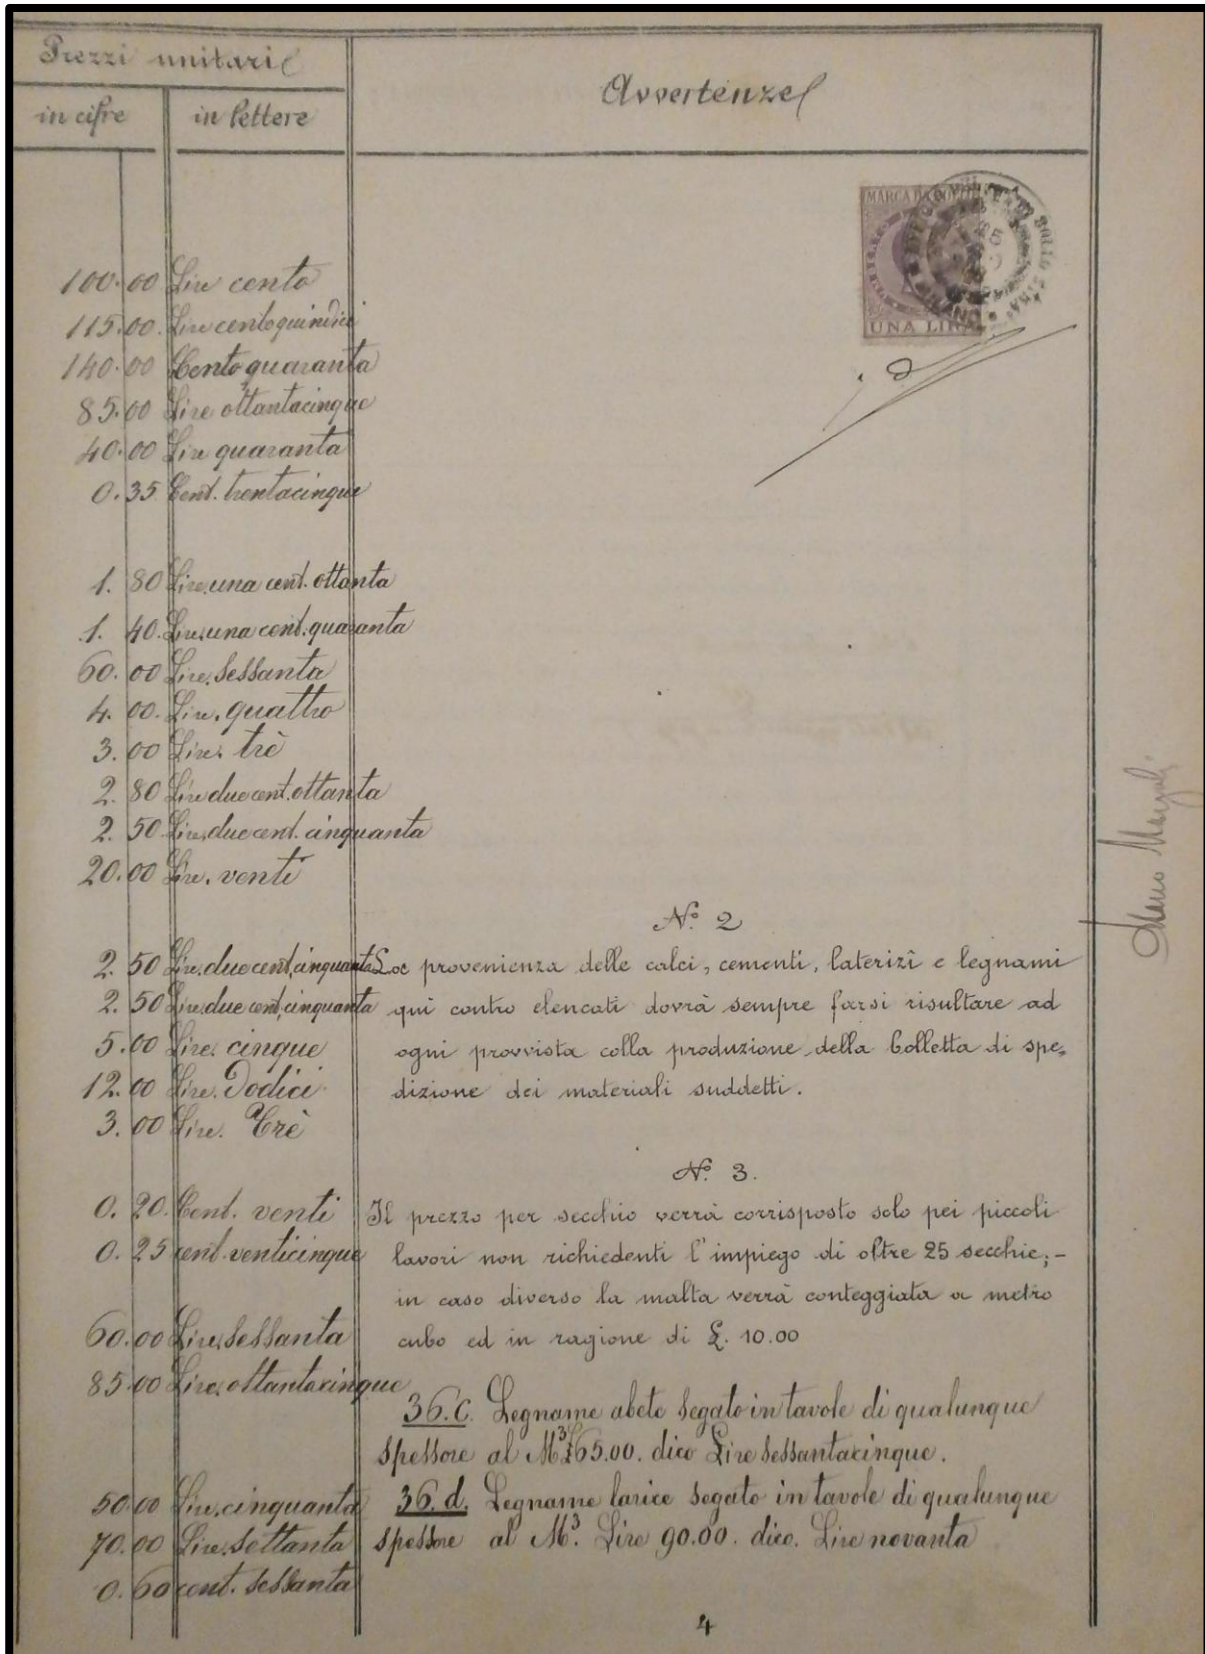 Prezzi unitari
in cifre in lettere
Avvertenze
MARCA DA BOLLO
UNA LIRA
100.00 Lire cento
115.00. Lire centoquindici
140.00 Cento quaranta
85.00 Lire ottantacinque
40.00 Lire quaranta
0.35 Cent. trentacinque
1. 80 Lire una cent. ottanta
1. 40. Lire una cent. quaranta
60.00 Lire. Sessanta
4. 00. Lire. quattro
3. 00 Lire. trè
2. 80 Lire due cent. ottanta
2. 50 Lire due cent. cinquanta
20.00 Lire. venti
2. 50 Lire. due cent. cinquanta
2. 50 Lire due cent. cinquanta
5.00 Lire. cinque
12.00 Lire. Dodici
3.00 Lire. Trè
0. 20. Cent. venti
0. 25 cent. venticinque
60.00 Lire Sessanta
85.00 Lire. ottantacinque
50.00 Lire. cinquanta
70.00 Lire. Settanta
0.60 cent. Sessanta
N.º 2
La provenienza delle calci, cementi, laterizî e legnami
quì contro elencati dovrà sempre farsi risultare ad
ogni provvista colla produzione della bolletta di spe=
dizione dei materiali suddetti.
N.º 3.
Il prezzo per secchio verrà corrisposto solo pei piccoli
lavori non richiedenti l'impiego di oltre 25 secchie; -
in caso diverso la malta verrà conteggiata a metro
cubo ed in ragione di £. 10.00
36.C. Legname abete segato in tavole di qualunque
spessore al M³ £65.00. dico Lire Sessantacinque.
36.d. Legname larice segato in tavole di qualunque
spessore al M³. Lire 90.00. dico. Lire novanta
4